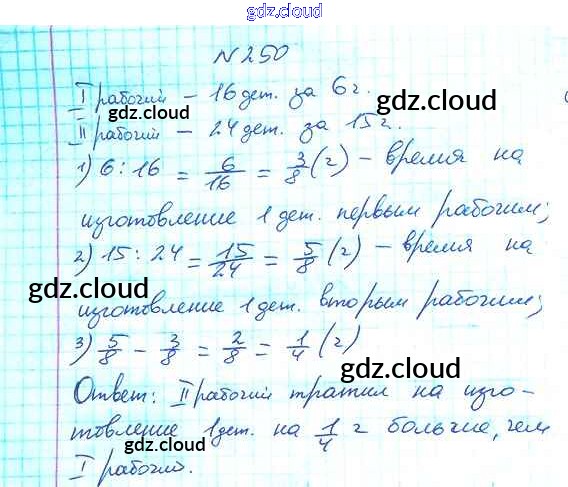 gdz.cloud
N 250
I рабочий – 16 дет. за 6 ч.
gdz.cloud
gdz.cloud
II рабочий – 24 дет. за 15 ч.
1) 6 : 16 = 6/16 = 3/8 (ч) – время на
изготовление 1 дет. первым рабочим;
2) 15 : 24 = 15/24 = 5/8 (ч) – время на
gdz.cloud
gdz.cloud
изготовление 1 дет. вторым рабочим;
3) 5/8 - 3/8 = 2/8 = 1/4 (ч)
gdz.cloud
Ответ: II рабочий тратил на изго-
товление 1 дет. на 1/4 ч больше, чем
gdz.cloud
gdz.cloud
I рабочий.